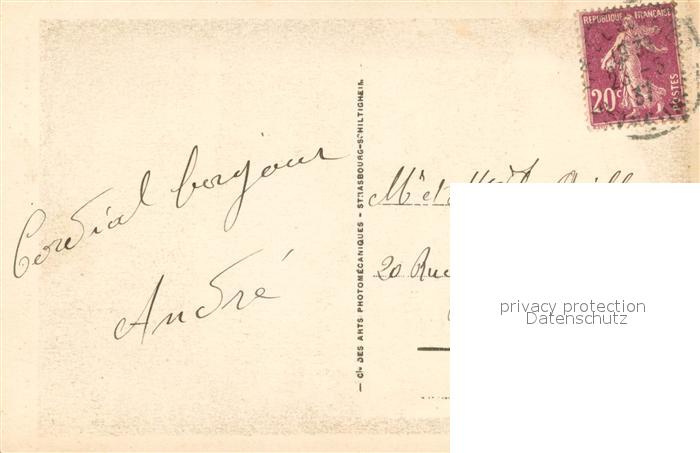 RÉPUBLIQUE FRANÇAISE
20c
POSTES
Cordial bonjour
André
— Cie DES ARTS PHOTOMÉCANIQUES - STRASBOURG-SCHILTIGHEIM
Mr et
20 Rue
privacy protection
Datenschutz